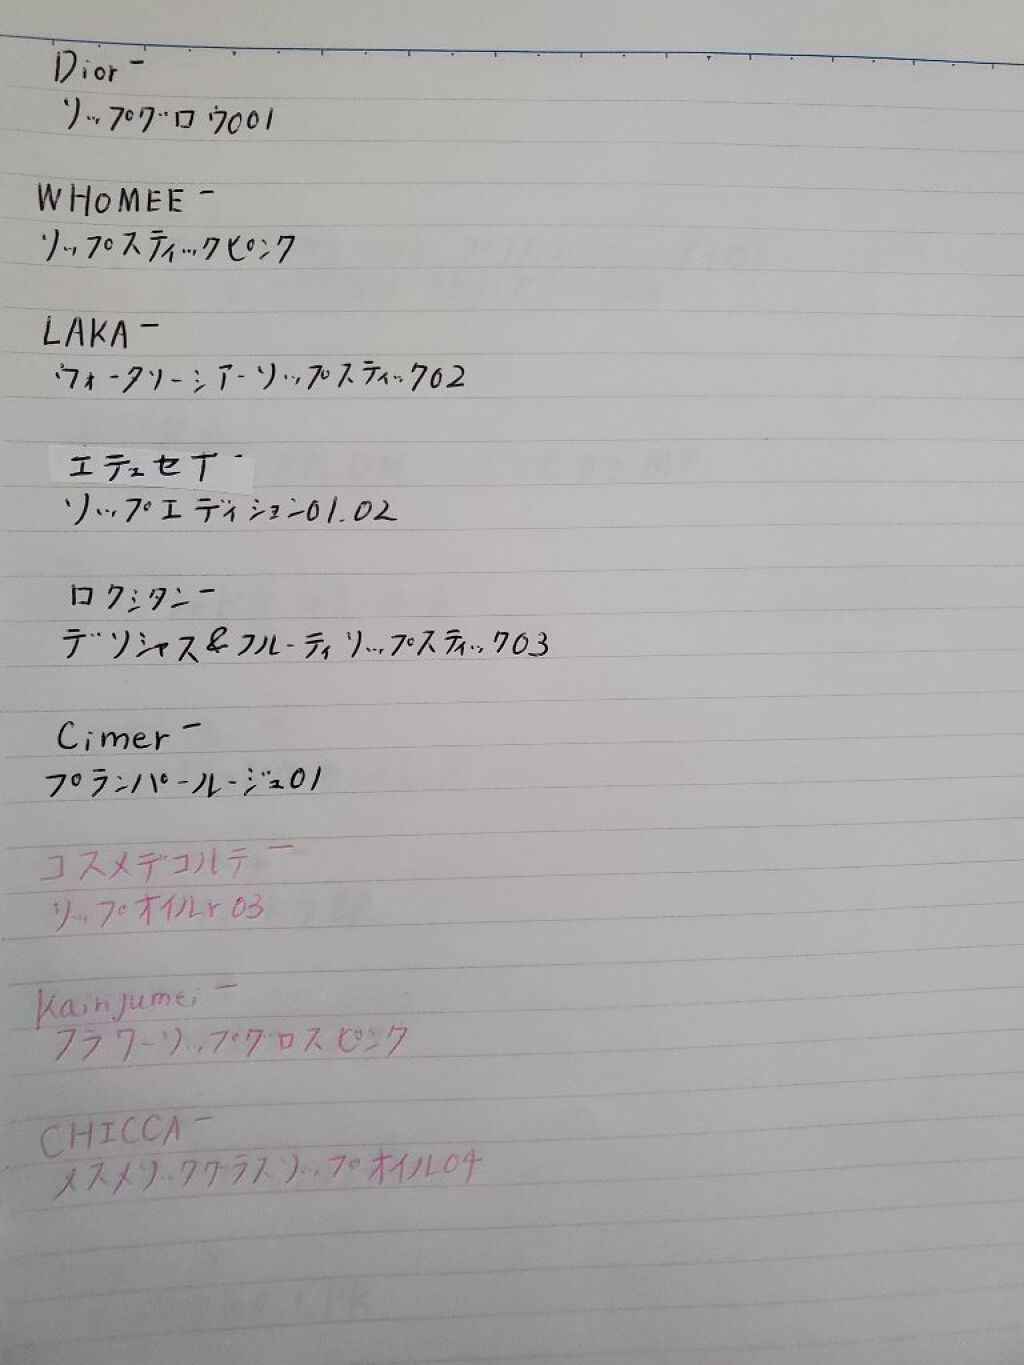 Dior-
リップグロウ001
WHOMEE-
リップスティックピンク
LAKA-
ウォータリーシアーリップスティック02
エテュセT-
リップエディション01.02
ロクシタン-
デリシャス&フルーティリップスティック03
Cimer-
プランパールージュ01
コスメデコルテ-
リップオイルr03
Kairijumei-
フラワーリップグロスピンク
CHICCA-
メスメリックグラスリップオイル04